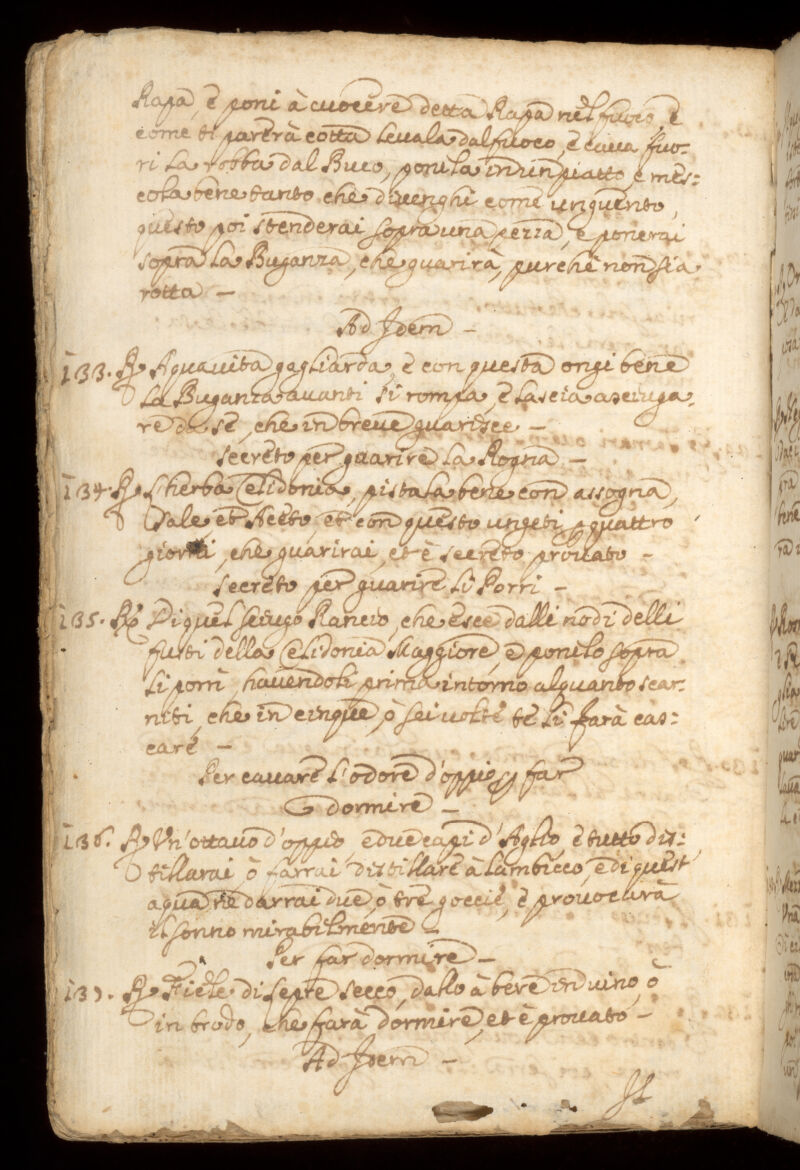 Rapa, è poni à cuocere detta Rapa nel fuoco, è
come ti parerà cotta levala dal fuoco, è cava fuo-
ri la robba dal Buco, ponila in d'un piatto, e mes:
cola bene tanto che divenghi come unguento,
questo poi stenderai sopra una pezza, è ponerai
sopra la Buganza, che guarirà, purche non sia
rotta –
Ad Idem –
133. ℞ Aquavita gagliarda, è con questa ongi bene
la Buganza avanti si rompa, è lascia asciuga-
re da se, che in breve guarisce –
Secreto per guarire la Rogna –
134. ℞ L'herba Celidonia, pistala bene con assogna,
Sale, et Aceto, et con questo ungeti p quattro
giorni, che guarirai, et è secreto provato –
Secreto per guarire li Porri –
135. ℞ Di quel sciugo Rancio, che esce dalli nodi delli
fusti della Celidonia Maggiore, è ponilo sopra
li porri, havendoli prima intorno alquanto scar-
niti, che in cinque, ò sei volte te li farà cas:
care –
Per cavare l'odore d'oppio p far
dormire –
136. ℞ Un'ottavo d'oppio e due capi d'Aglio, è tutto dis:
tillarai ò farrai distillare à lambicco, e di quest'
aqua ne darrai due, ò tre goccie, è provocarà
il sonno mirabilmente –
Per far dormire –
137. ℞ Fiele di lepre secco, dallo à bere in d'vino, ò
in brodo, che farà dormire, et è provato –
Ad Idem –